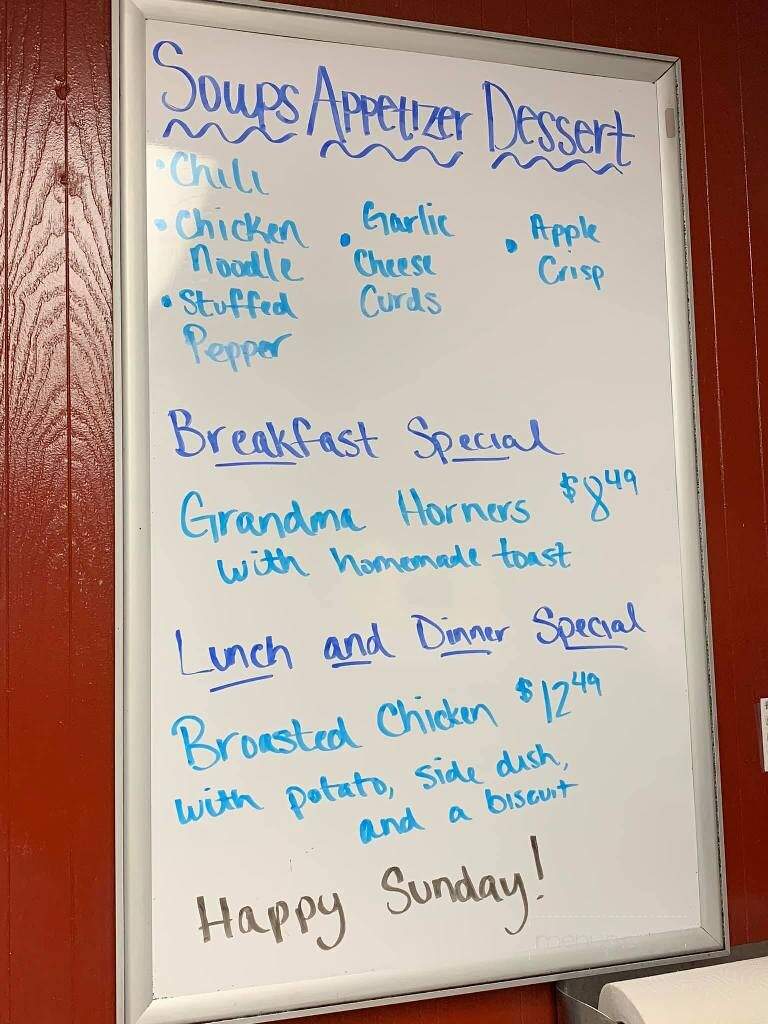 Soups Appetizer Dessert
• Chili
• Chicken
Noodle
• Stuffed
Pepper
• Garlic
Cheese
Curds
• Apple
Crisp
Breakfast Special
Grandma Horners $8.49
with homemade toast
Lunch and Dinner Special
Broasted Chicken $12.49
with potato, side dish,
and a biscuit
Happy Sunday!